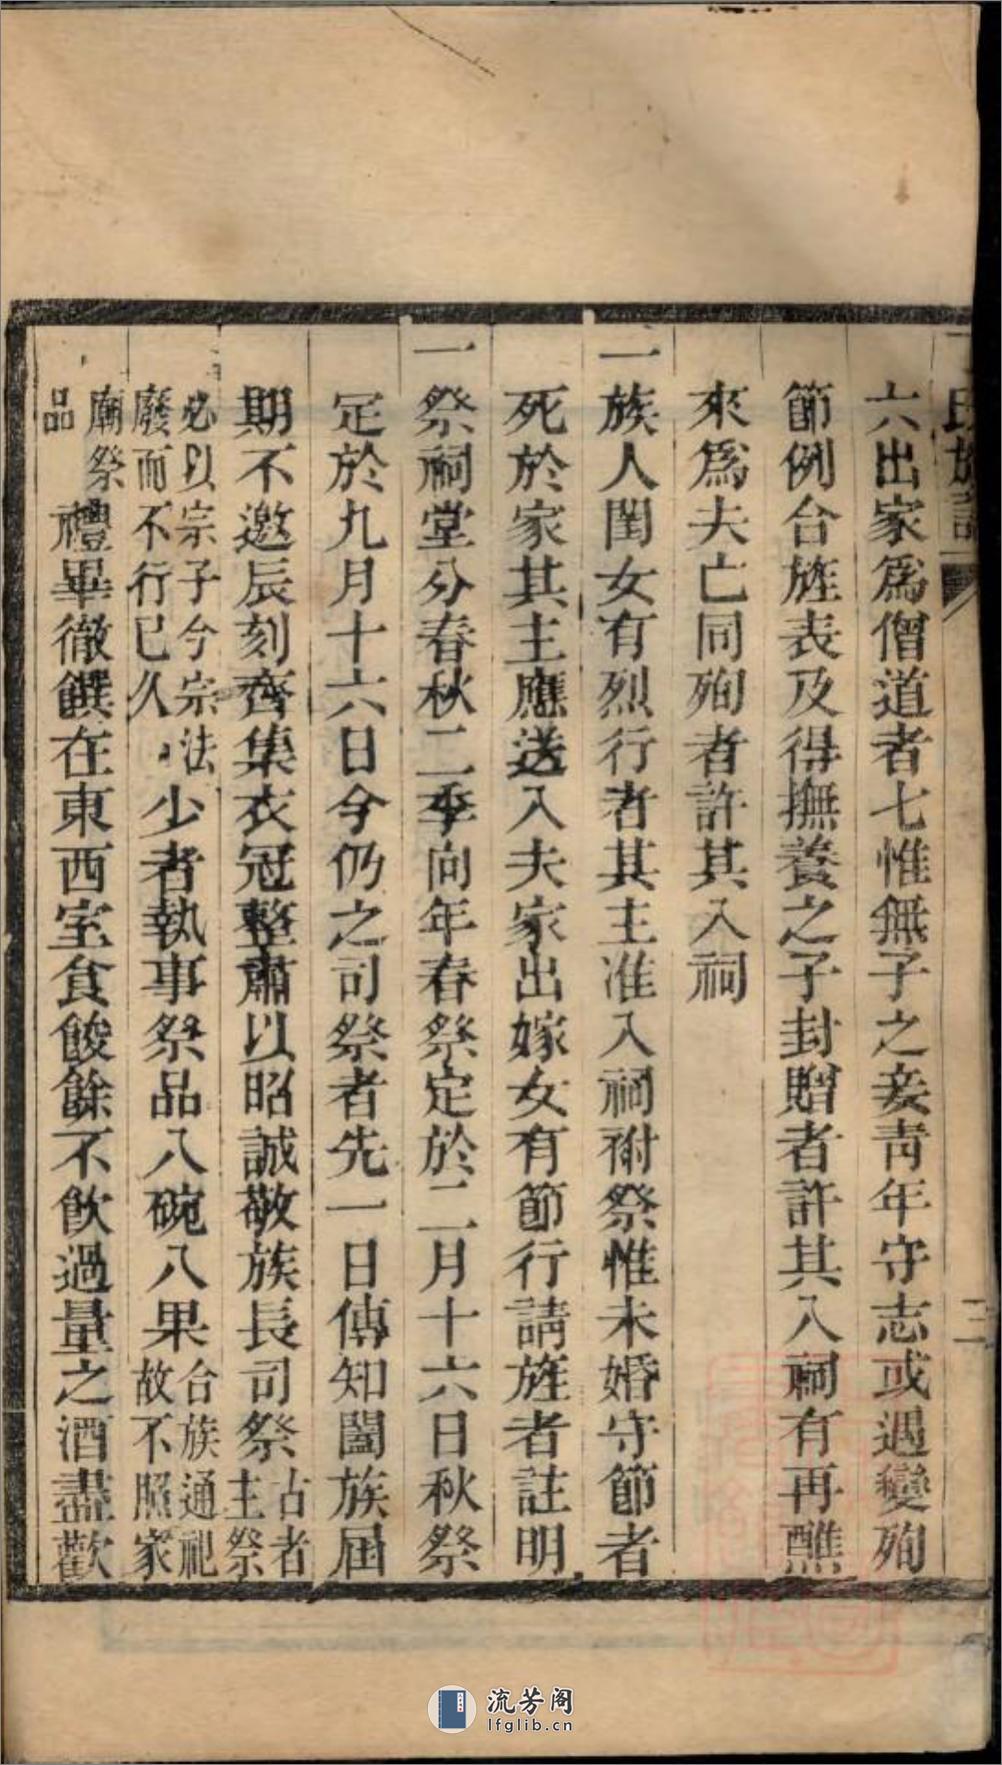 六出家爲僧道者七惟無子之妾靑年守志或遇變殉
節例合旌表及得撫養之子封贈者許其入祠有再醮
來爲夫亡同殉者許其入祠
一族人閨女有烈行者其主准入祠祔祭惟未婚守節者
死於家其主應送入夫家出嫁女有節行請旌者註明
一祭祠堂分春秋二季向年春祭定於二月十六日秋祭
定於九月十六日今仍之司祭者先一日傳知闔族屆
期不邀辰刻齊集衣冠整肅以昭誠敬族長司祭古者主祭
必以宗子今宗法廢而不行已久少者執事祭品八碗八果合族通祀故不照家
廟祭品禮畢徹饌在東西室食餕餘不飲過量之酒盡歡
三
流芳阁
lfglib.cn